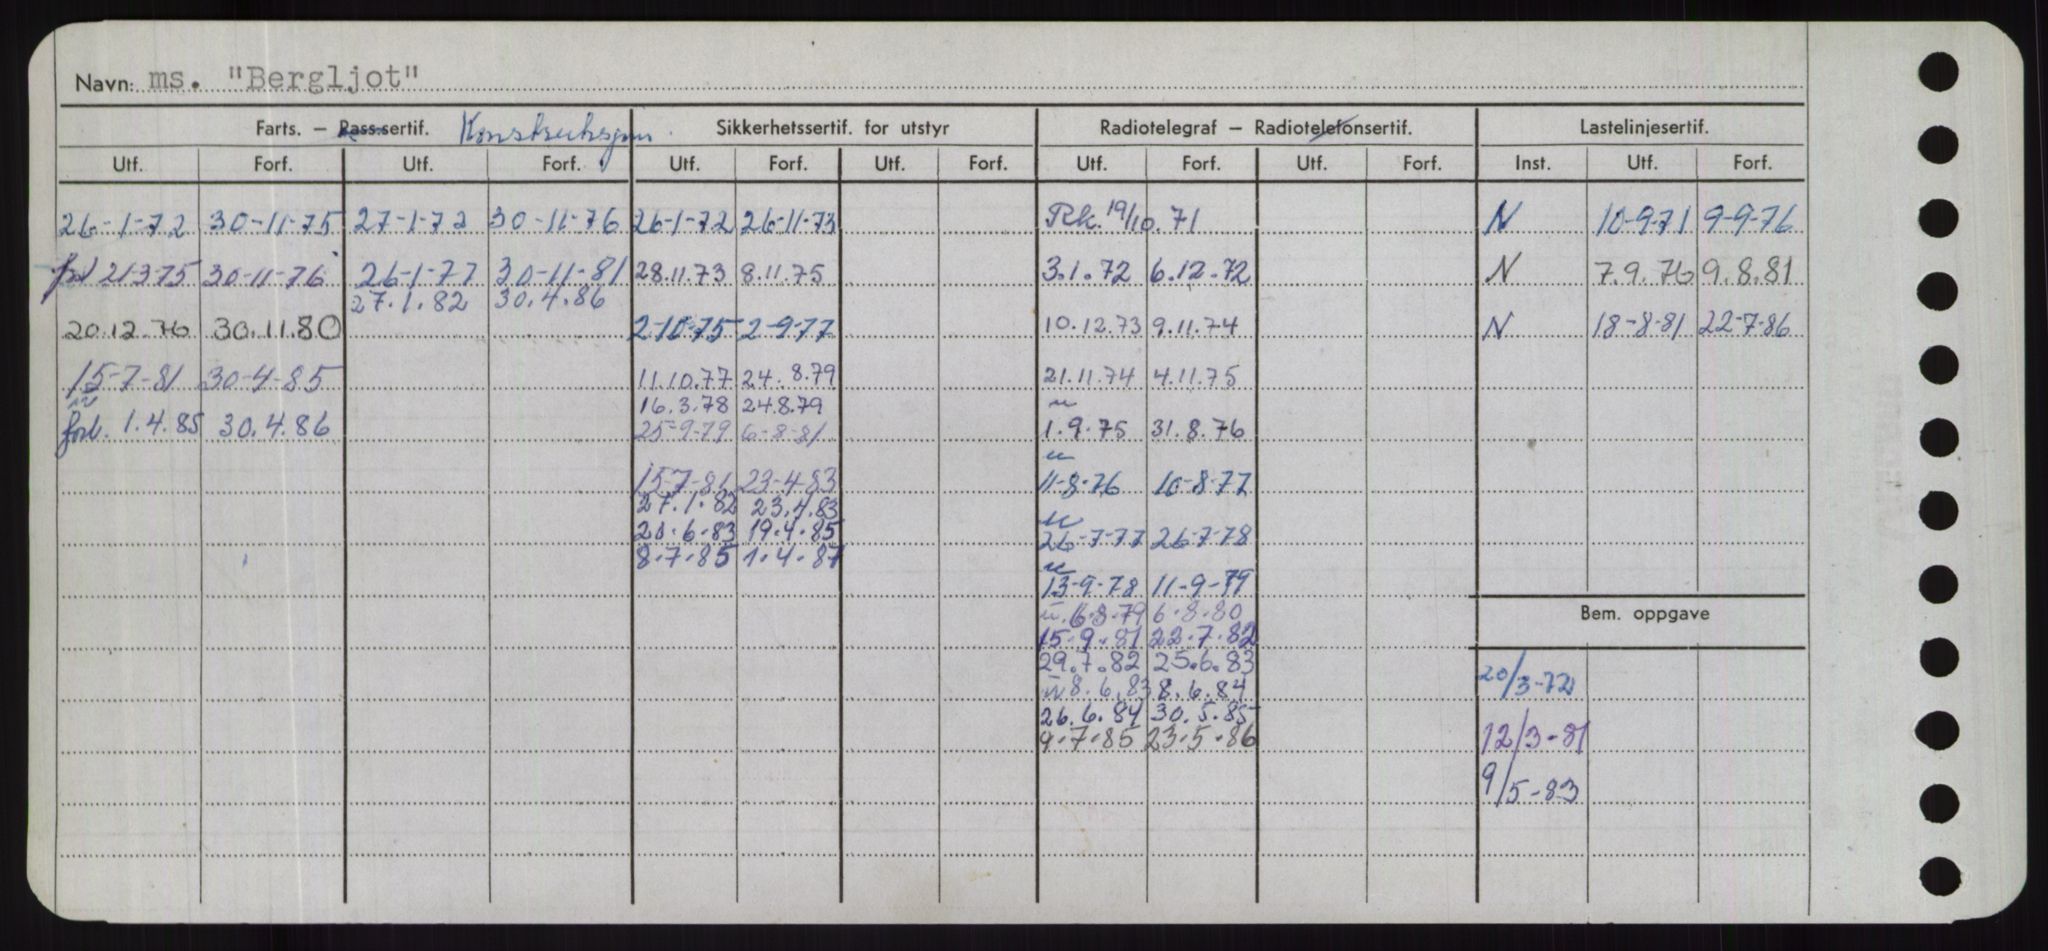 Navn: ms. "Bergljot"
Farts. – Pass.sertif. Konstruksjon Sikkerhetssertif. for utstyr Radiotelegraf – Radiotelefonsertif. Lastelinjesertif.
Utf. Forf. Utf. Forf. Utf. Forf. Utf. Forf. Utf. Forf. Utf. Forf. Inst. Utf. Forf.
26-1-72 30-11-75 27-1-72 30-11-76 26-1-72 26-11-73 Rk. 19/10.71 N 10-9-71 9-9-76
21-3-75 30-11-76 26-1-77 30-11-81 28.11.73 8.11.75 3.1.72 6.12.72 N 7.9.76 9.8.81
27.1.82 30.4.86
20.12.76 30.11.80 2-10-75 2-9-77 10.12.73 9.11.74 N 18-8-81 22-7-86
15-7-81 30-4-85 11.10.77 24.8.79 21.11.74 4.11.75
16.3.78 24.8.79
forl. 1.4.85 30.4.86 25-9-79 6-8-81 1.9.75 31.8.76
15-7-81 23-4-83 11-8-76 10-8-77
27.1.82 23.4.83
20.6.83 19.4.85 26-7-77 26-7-78
8.7.85 1.4.87
13-9-78 11-9-79
6-8-79 6-8-80 Bem. oppgave
15.9.81 22.7.82
29.7.82 25.6.83 20/3-72
8.6.83 8.6.84
26.6.84 30.5.85
9.7.85 23.5.86 12/3-81
9/5-83